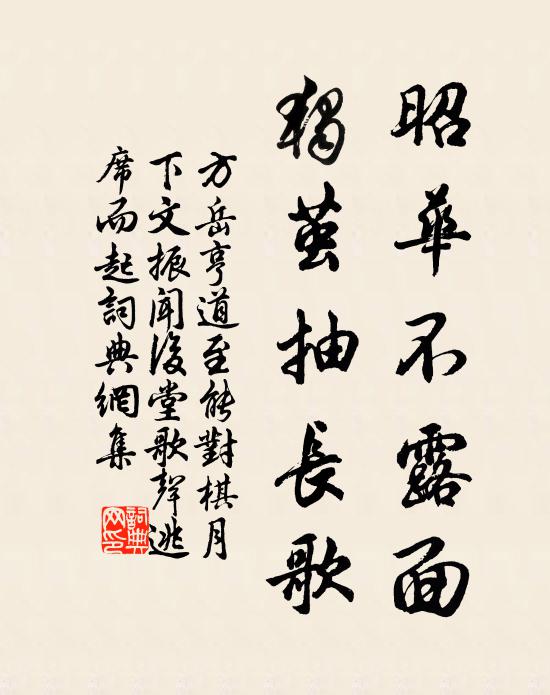 昭華不露面
獨茧抽長歌
方岳亨道至能對棋月
下文振聞後堂歌聲逃
席而起詞典網集
詞典
网印